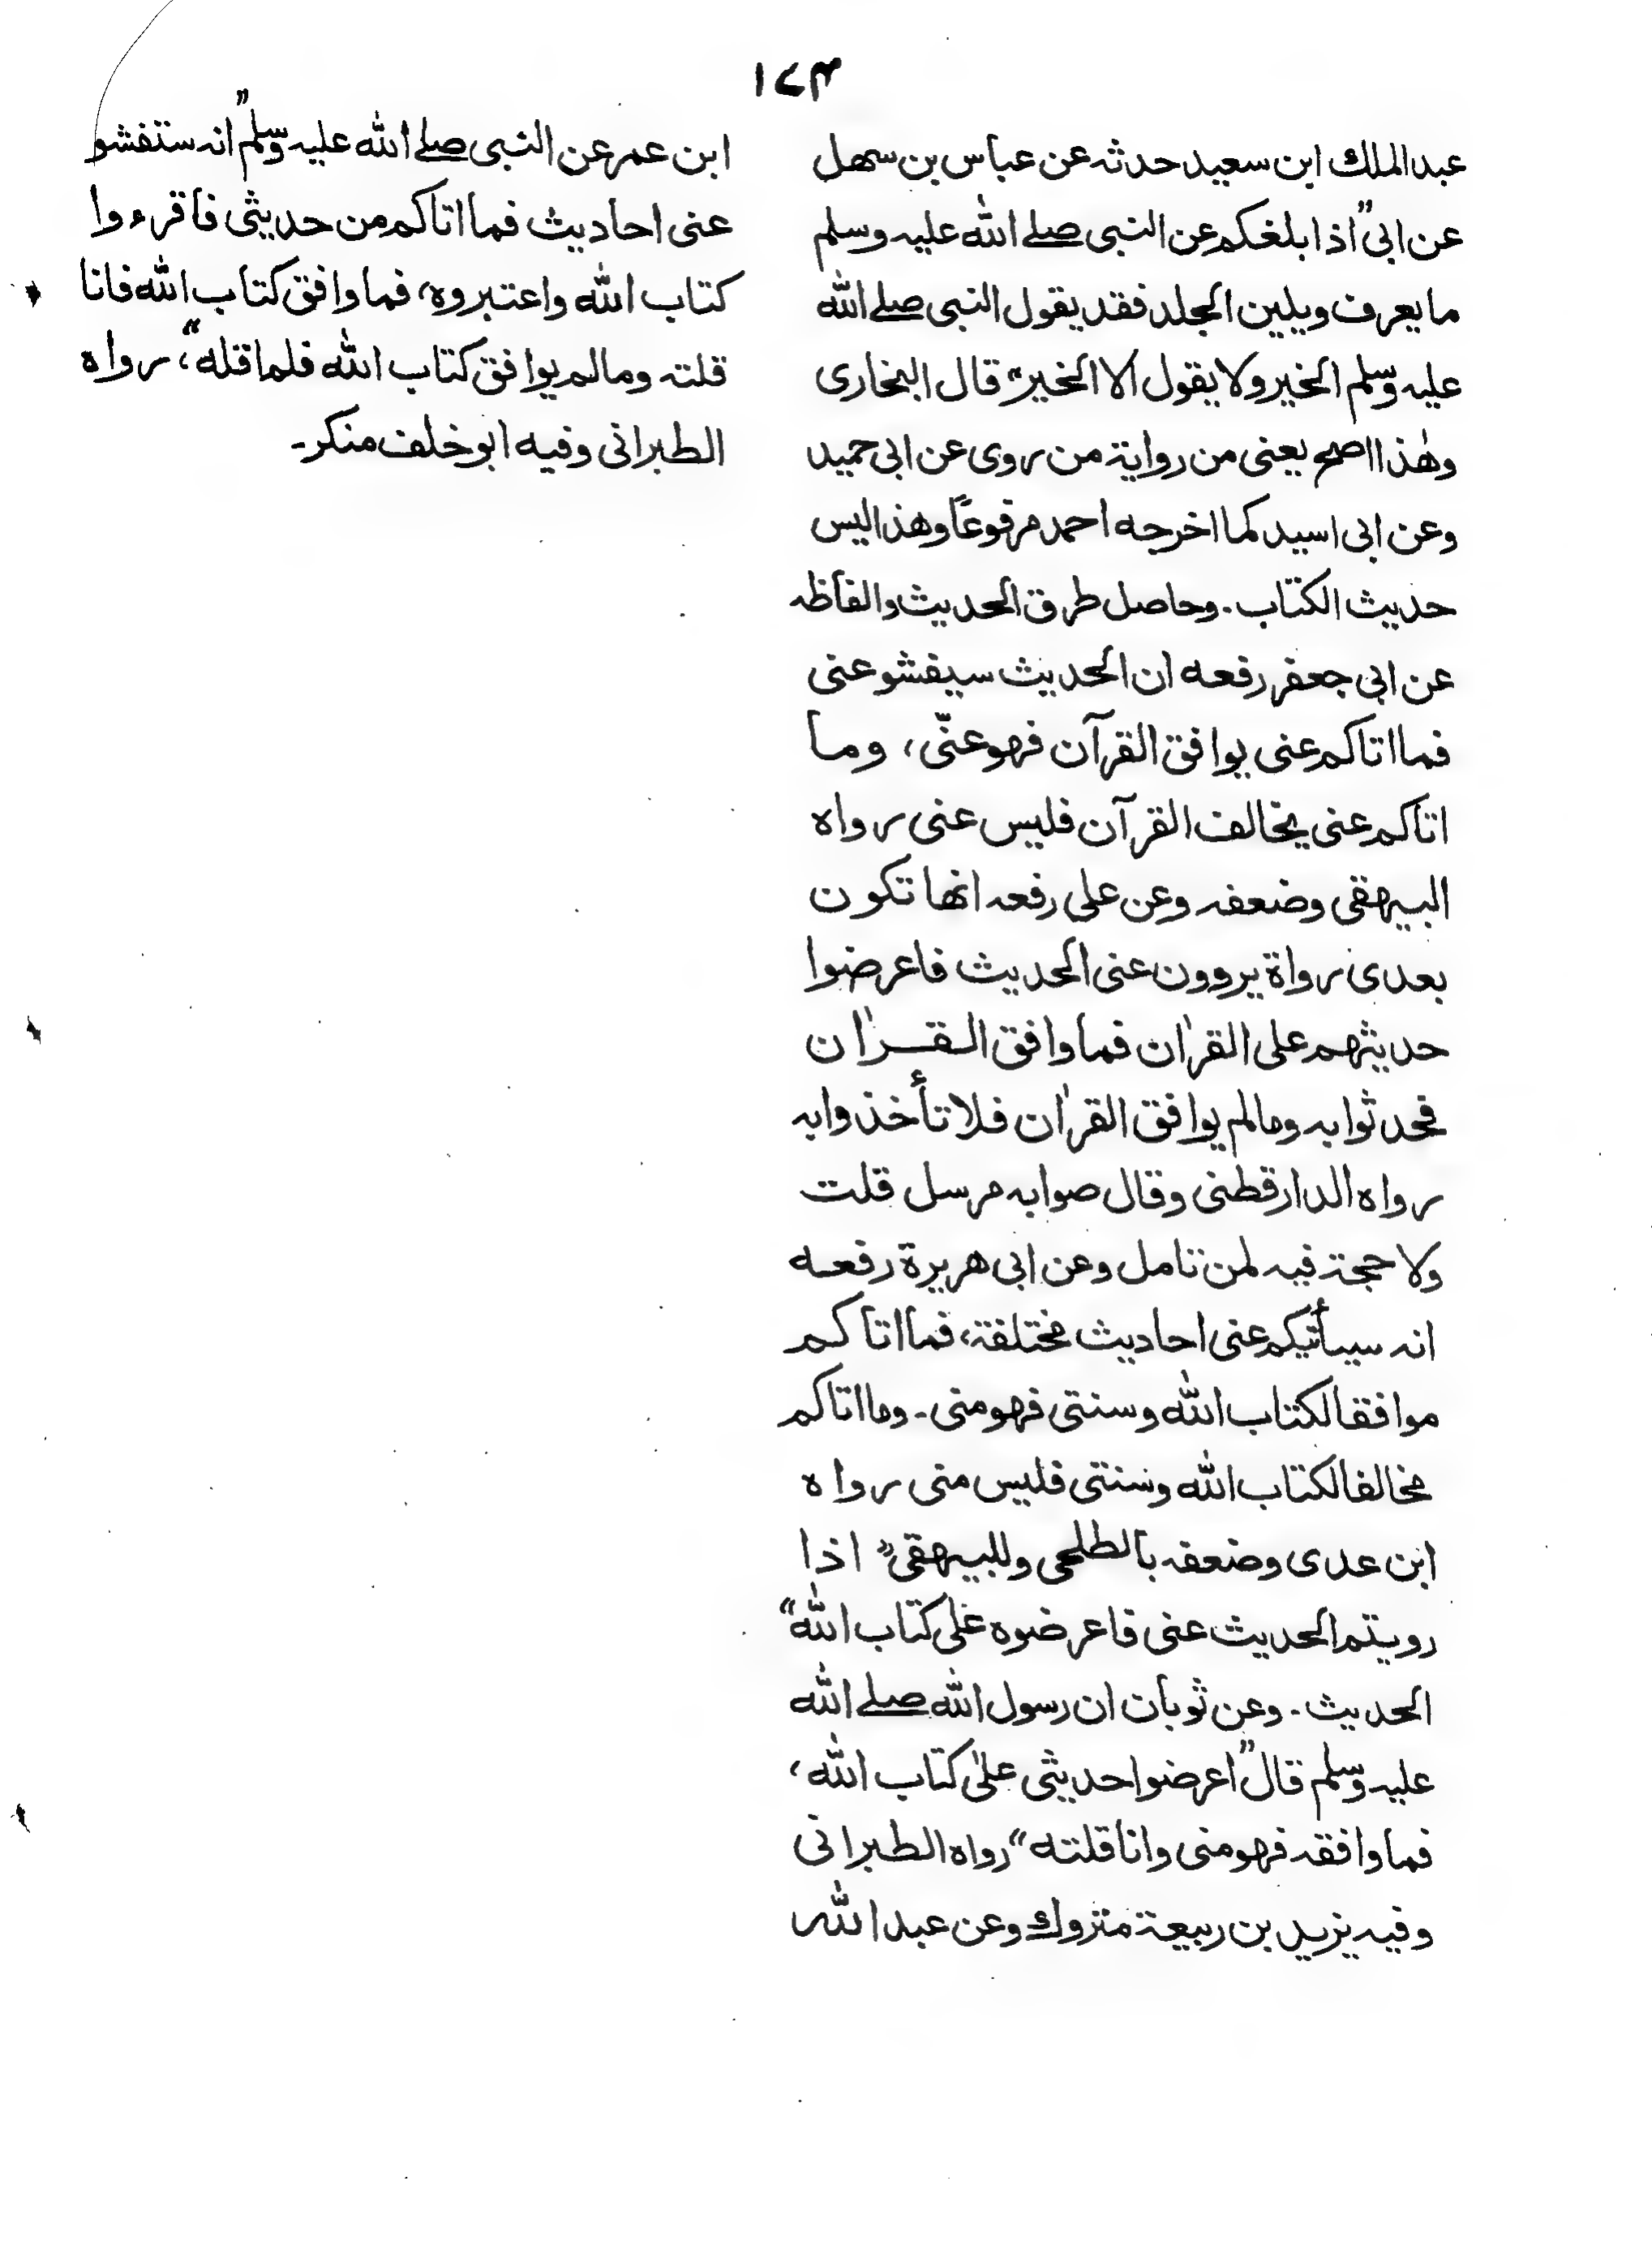 ۱۷۳
عبد الملك ابن سعيد حدثه عن عباس بن سهل
عن ابی "اذا بلغكم عن النبی صلے الله عليه وسلم
ما يعرف ويلين الجلد فقد يقول النبی صلے الله
عليه وسلم الخير ولا يقول الا الخير" قال البخاری
وهٰذا اصح يعنی من رواية من روی عن ابی حميد
وعن ابی اسيد كما اخرجه احمد مرفوعًا وهذا ليس
حديث الكتاب۔ وحاصل طرق الحديث والفاظه
عن ابی جعفر رفعه ان الحديث سيفشو عنی
فما اتاكم عنی يوافق القرآن فهو عنّی، وما
اتاكم عنی يخالف القرآن فليس عنی رواه
البيهقی وضعفه وعن علی رفعه انها تكون
بعدی رواة يروون عنی الحديث فاعرضوا
حديثهم علی القرٰان فما وافق القرٰان
فحدثوا به ومالم يوافق القرٰان فلا تأخذوا به
رواه الدارقطنی وقال صوابه مرسل قلت
ولا حجة فيه لمن تامل وعن ابی هريرة رفعه
انه سيأتيكم عنی احاديث مختلفة، فما اتاكم
موافقا لكتاب الله وسنتی فهو منی۔ وما اتاكم
مخالفا لكتاب الله وسنتی فليس منی رواه
ابن عدی وضعفه بالطلحی وللبيهقی" اذا
رويتم الحديث عنی فاعرضوه علی كتاب الله"
الحديث۔ وعن ثوبان ان رسول الله صلے الله
عليه وسلم قال "اعرضوا حديثی علیٰ كتاب الله،
فما وافقه فهو منی وانا قلته" رواه الطبرانی
وفيه يزيد بن ربيعة متروك وعن عبد الله
ابن عمر عن النبی صلے الله عليه وسلم "انه ستفشو
عنی احاديث فما اتاكم من حديثی فاقرءوا
كتاب الله واعتبروه، فما وافق كتاب الله فانا
قلته ومالم يوافق كتاب الله فلم اقله"، رواه
الطبرانی وفيه ابو خلف منكر۔